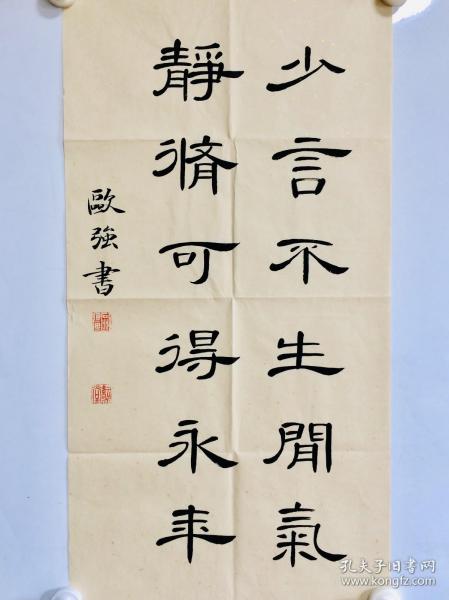 少言不生閒氣
靜脩可得永年
歐強書
孔夫子旧书网
www.kongfz.com